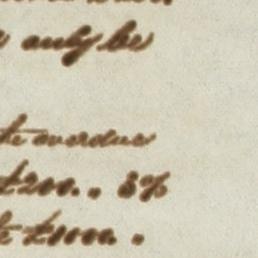 only be
te overdue
£200. . 8%
te £1000. .